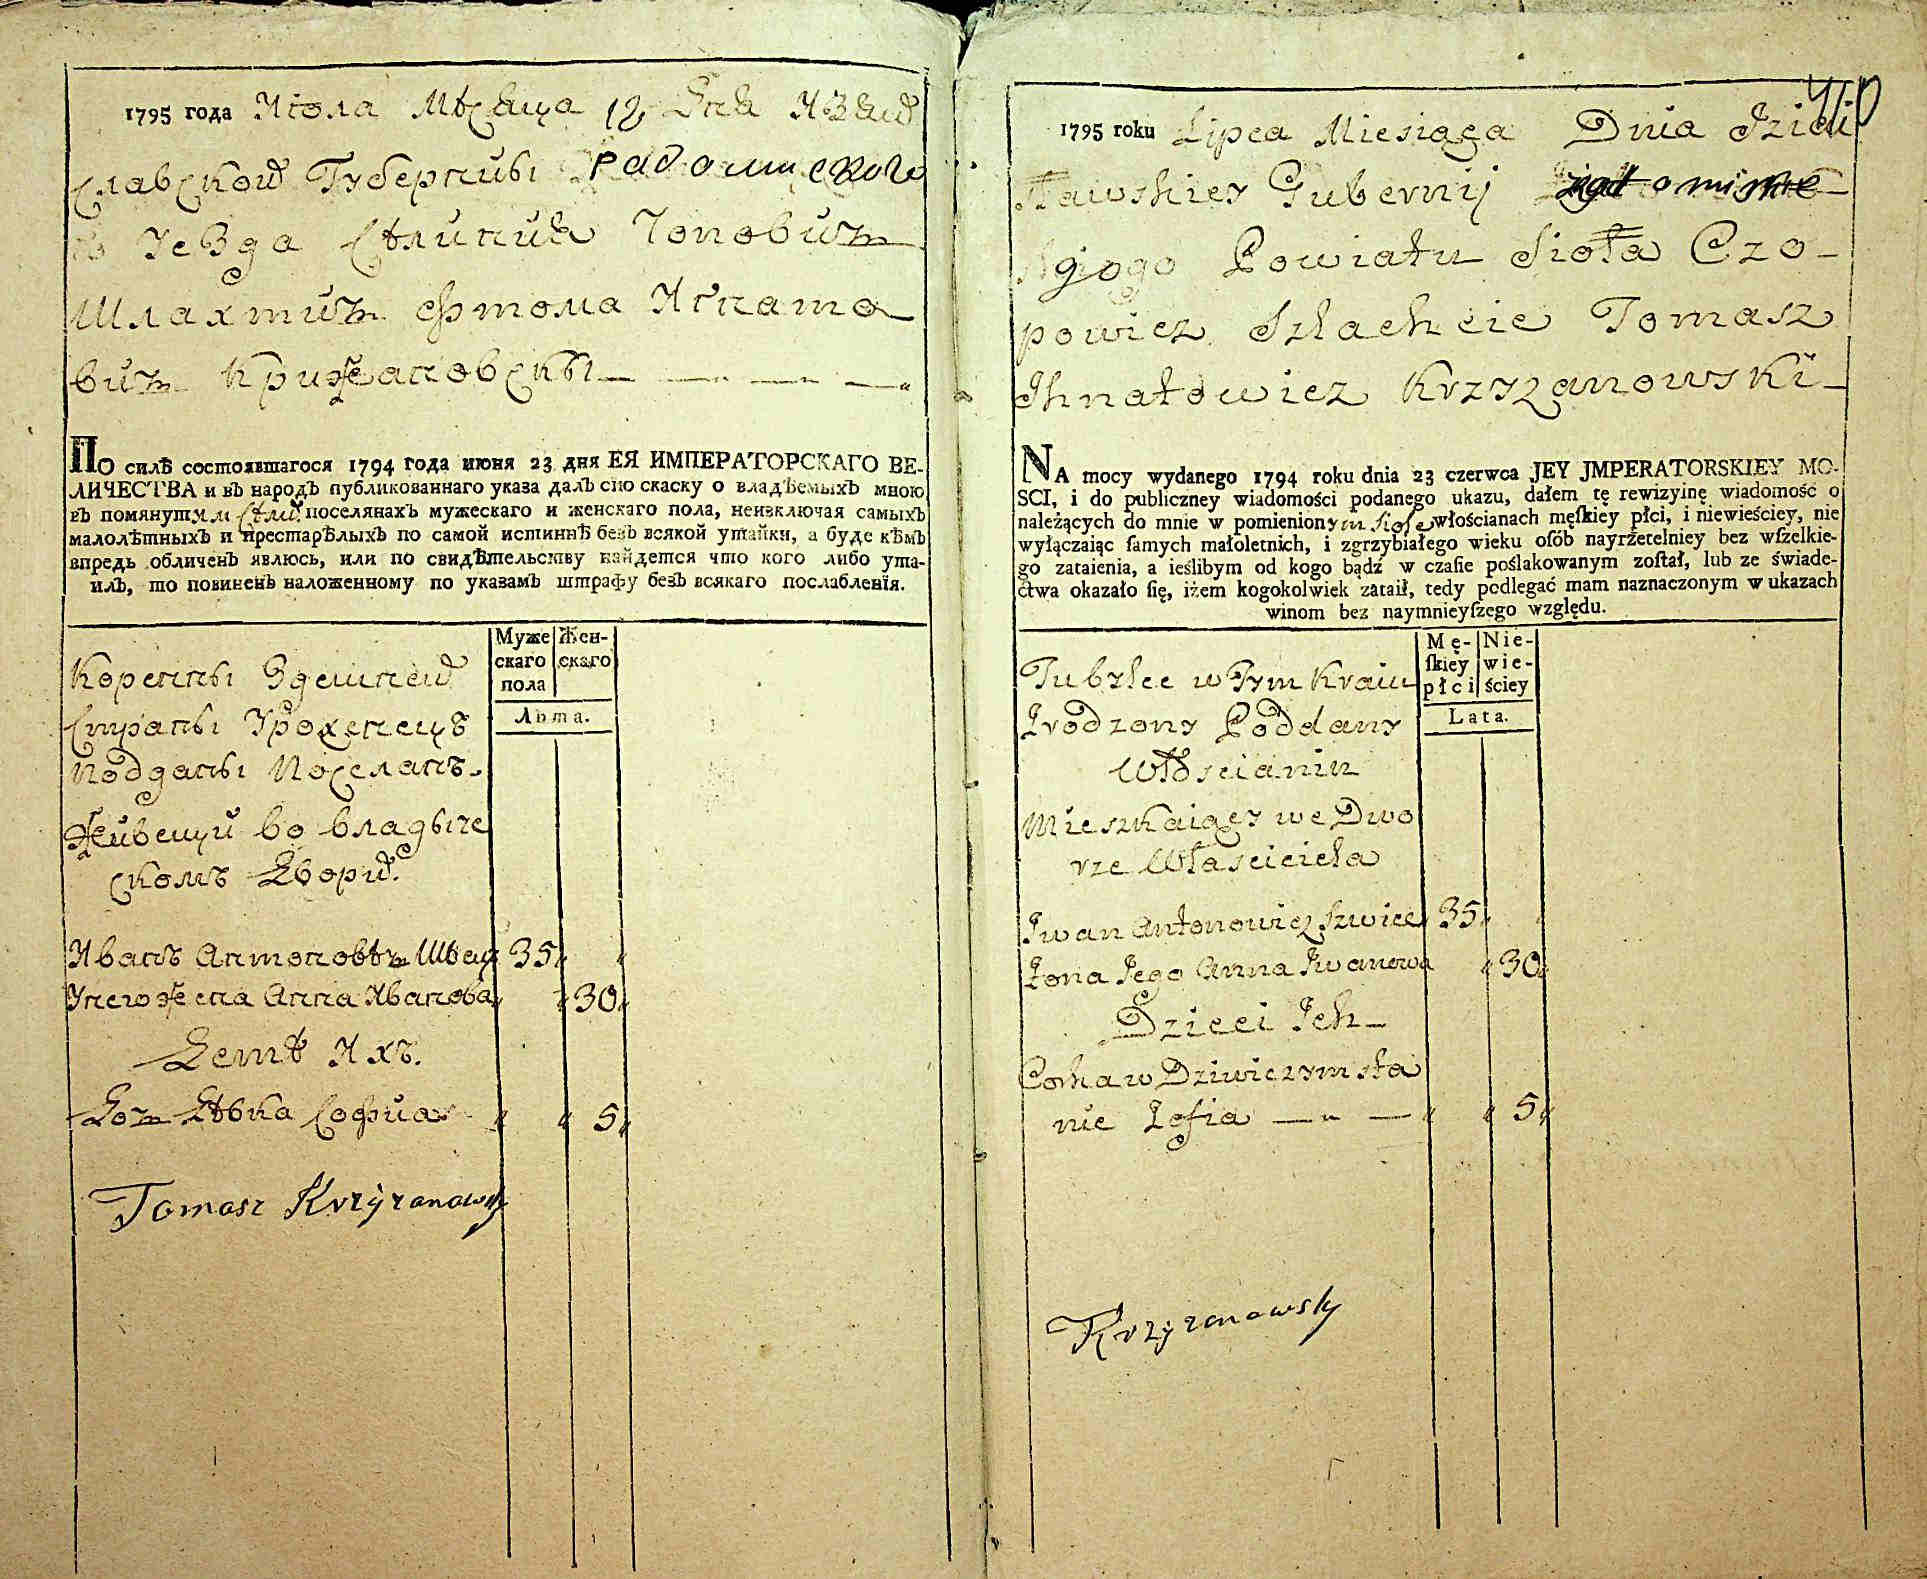 1795 года Июла Мѣсяца 12 Дня Изяи
славской Губернйи Радомишского
Уезда Сѣлиния Чопович
Шляхтичъ Фтома Игнато
вич Крижановскы
ПО силѣ состоявшагося 1794 года июня 23 дня ЕЯ ИМПЕРАТОРСКАГО ВЕ-
ЛИЧЕСТВА и въ народъ публикованнаго указа далъ сию скаску о владѣемыхъ мною
въ помянутым Сѣли поселянахъ мужескаго и женскаго пола, неизключая самыхъ
малолѣтныхъ и престарѣлыхъ по самой истиннѣ безъ всякой утайки, а буде кѣмъ
впредь обличенъ явлюсь, или по свидѣтельству найдется что кого либо ута-
илъ, то повиненъ наложенному по указамъ штрафу безъ всякаго послабленїя.
Муже
скаго
пола
Жен-
скаго
Лѣта.
Коренны Здешней
Страны Уроженецъ
Подданы Поселанъ
Живещий во владыче
скомъ Двори.
Иванъ Антоновѣч Швец 35
Унего жена Анна Иванова 30
Детѣ Ихъ.
Доч Дѣвка София 5
Tomasz Krzyzanowsky
40
1795 roku Lipca Miesiąca Dnia Izia
sławskiey Gubernij
Powiatu Sioła Czo-
powicz Szlachcic Tomasz
Ihnatowicz Krzyzanowski
NA mocy wydanego 1794 roku dnia 23 czerwca JEY JMPERATORSKIEY MO-
SCI, i do publiczney wiadomości podanego ukazu, dałem tę rewizyinę wiadomość o
należących do mnie w pomienionym siole włościanach męſkiey płci, i niewieściey, nie
wyłączaiąc ſamych małoletnich, i zgrzybiałego wieku oſób nayrzetelniey bez wſzelkie-
go zataienia, a ieślibym od kogo bądź w czaſie poślakowanym zoſtał, lub ze świade-
ctwa okazało ſię, iżem kogokolwiek zataił, tedy podlegać mam naznaczonym w ukazach
winom bez naymnieyſzego względu.
Mę-
ſkiey
płci
Nie-
wie-
ściey
Lata.
Tubylec w Tym Kraiu
Zrodzony Poddany
Włościanin
Mieszkaiący we Dwo
rze Własciciela
Iwan Antonowicz Szwiec 35
Zona Jego Anna Iwanowa 30
Dzieci Ich
Corka w Dziwiczym sta
nie Zofia 5
Krzyzanowsky